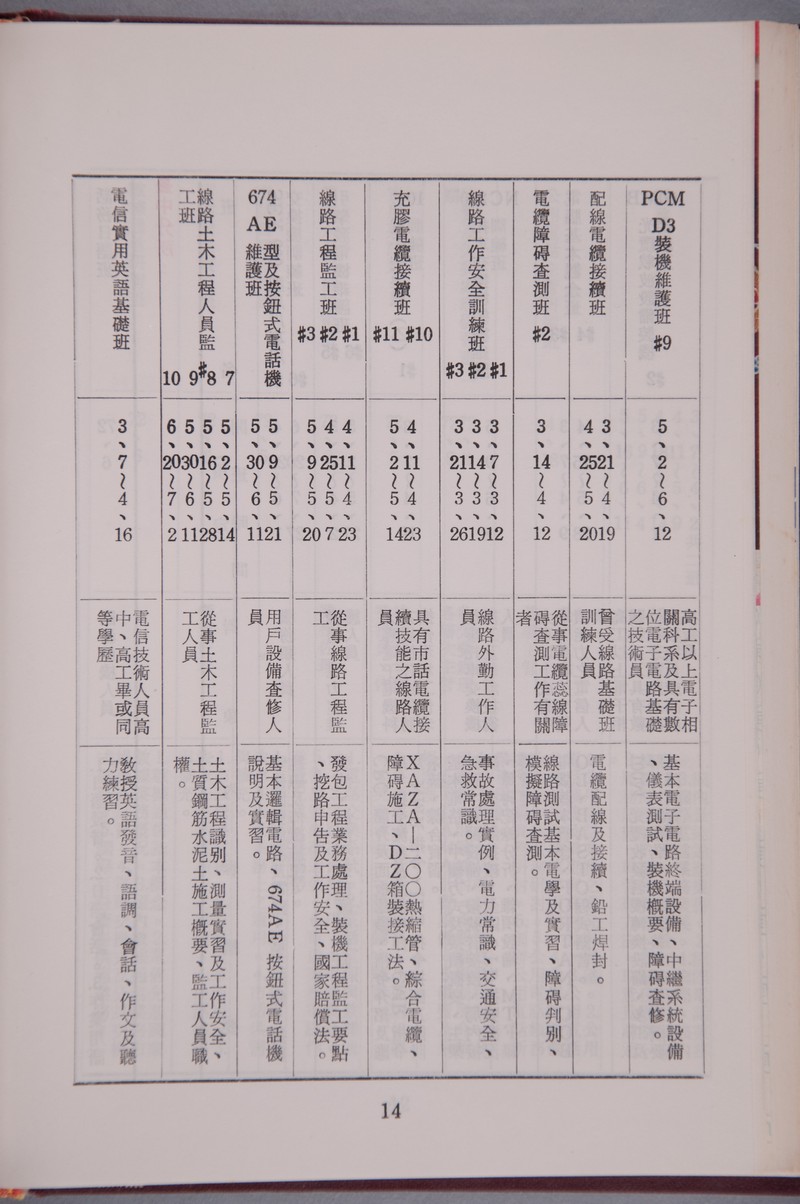 PCM D3裝機維護班 #9
5、2〜6、12
高工以上電子相
關科系及具有數
位電子電路基礎
之技術員
基本電子電路終端設備、中繼系統設備
、儀表測試、裝機概要、障碍查修。
配線電纜接續班
3、21〜4、19
4、25〜5、20
曾受線路基礎班
訓練人員
電纜配線及接續、鉛工焊封。
電纜障碍查測班 #2
3、14〜4、12
從事電纜蕊線障
碍查測工作有關
者
線路測試基本電學及實習、障碍判別、
模擬障碍查測。
線路工作安全訓練班 #1 #2 #3
3、7〜3、12
3、14〜3、19
3、21〜3、26
線路外勤工作人
員
事故處理實例、電力常識、交通安全、
急救常識。
充膠電纜接續班 #10 #11
4、11〜4、23
5、2〜5、14
具有市話電纜接
續技能之線路人
員
XAZA—二〇〇熱縮管、綜合電纜、
障碍施工、DZ箱裝接工法。
線路工程監工班 #1 #2 #3
4、11〜4、23
4、25〜5、7
5、9〜5、20
從事線路工程監
工
發包工程業務處理、裝機工程監工要點
、挖路申告及工作安全、國家賠償法。
674 AE 型及按鈕式電話機
維護班
5、9〜5、21
5、30〜6、11
用戶設備查修人
員
基本邏輯電路、674AE按鈕式電話機
說明及實習。
線路土木工程人員監
工班 #7 8 9 10
5、2〜5、14
5、16〜5、28
5、30〜6、11
6、20〜7、2
從事土木工程監
工人員
土木工程識別、測量實習及工作安全、
土質鋼筋水泥土施工概要、監工人員職
權。
電信實用英語基礎班
3、7〜4、16
電信技術人員高
中、高工畢或同
等學歷
敎授英語發音、語調、會話、作文及聽
力練習。
14